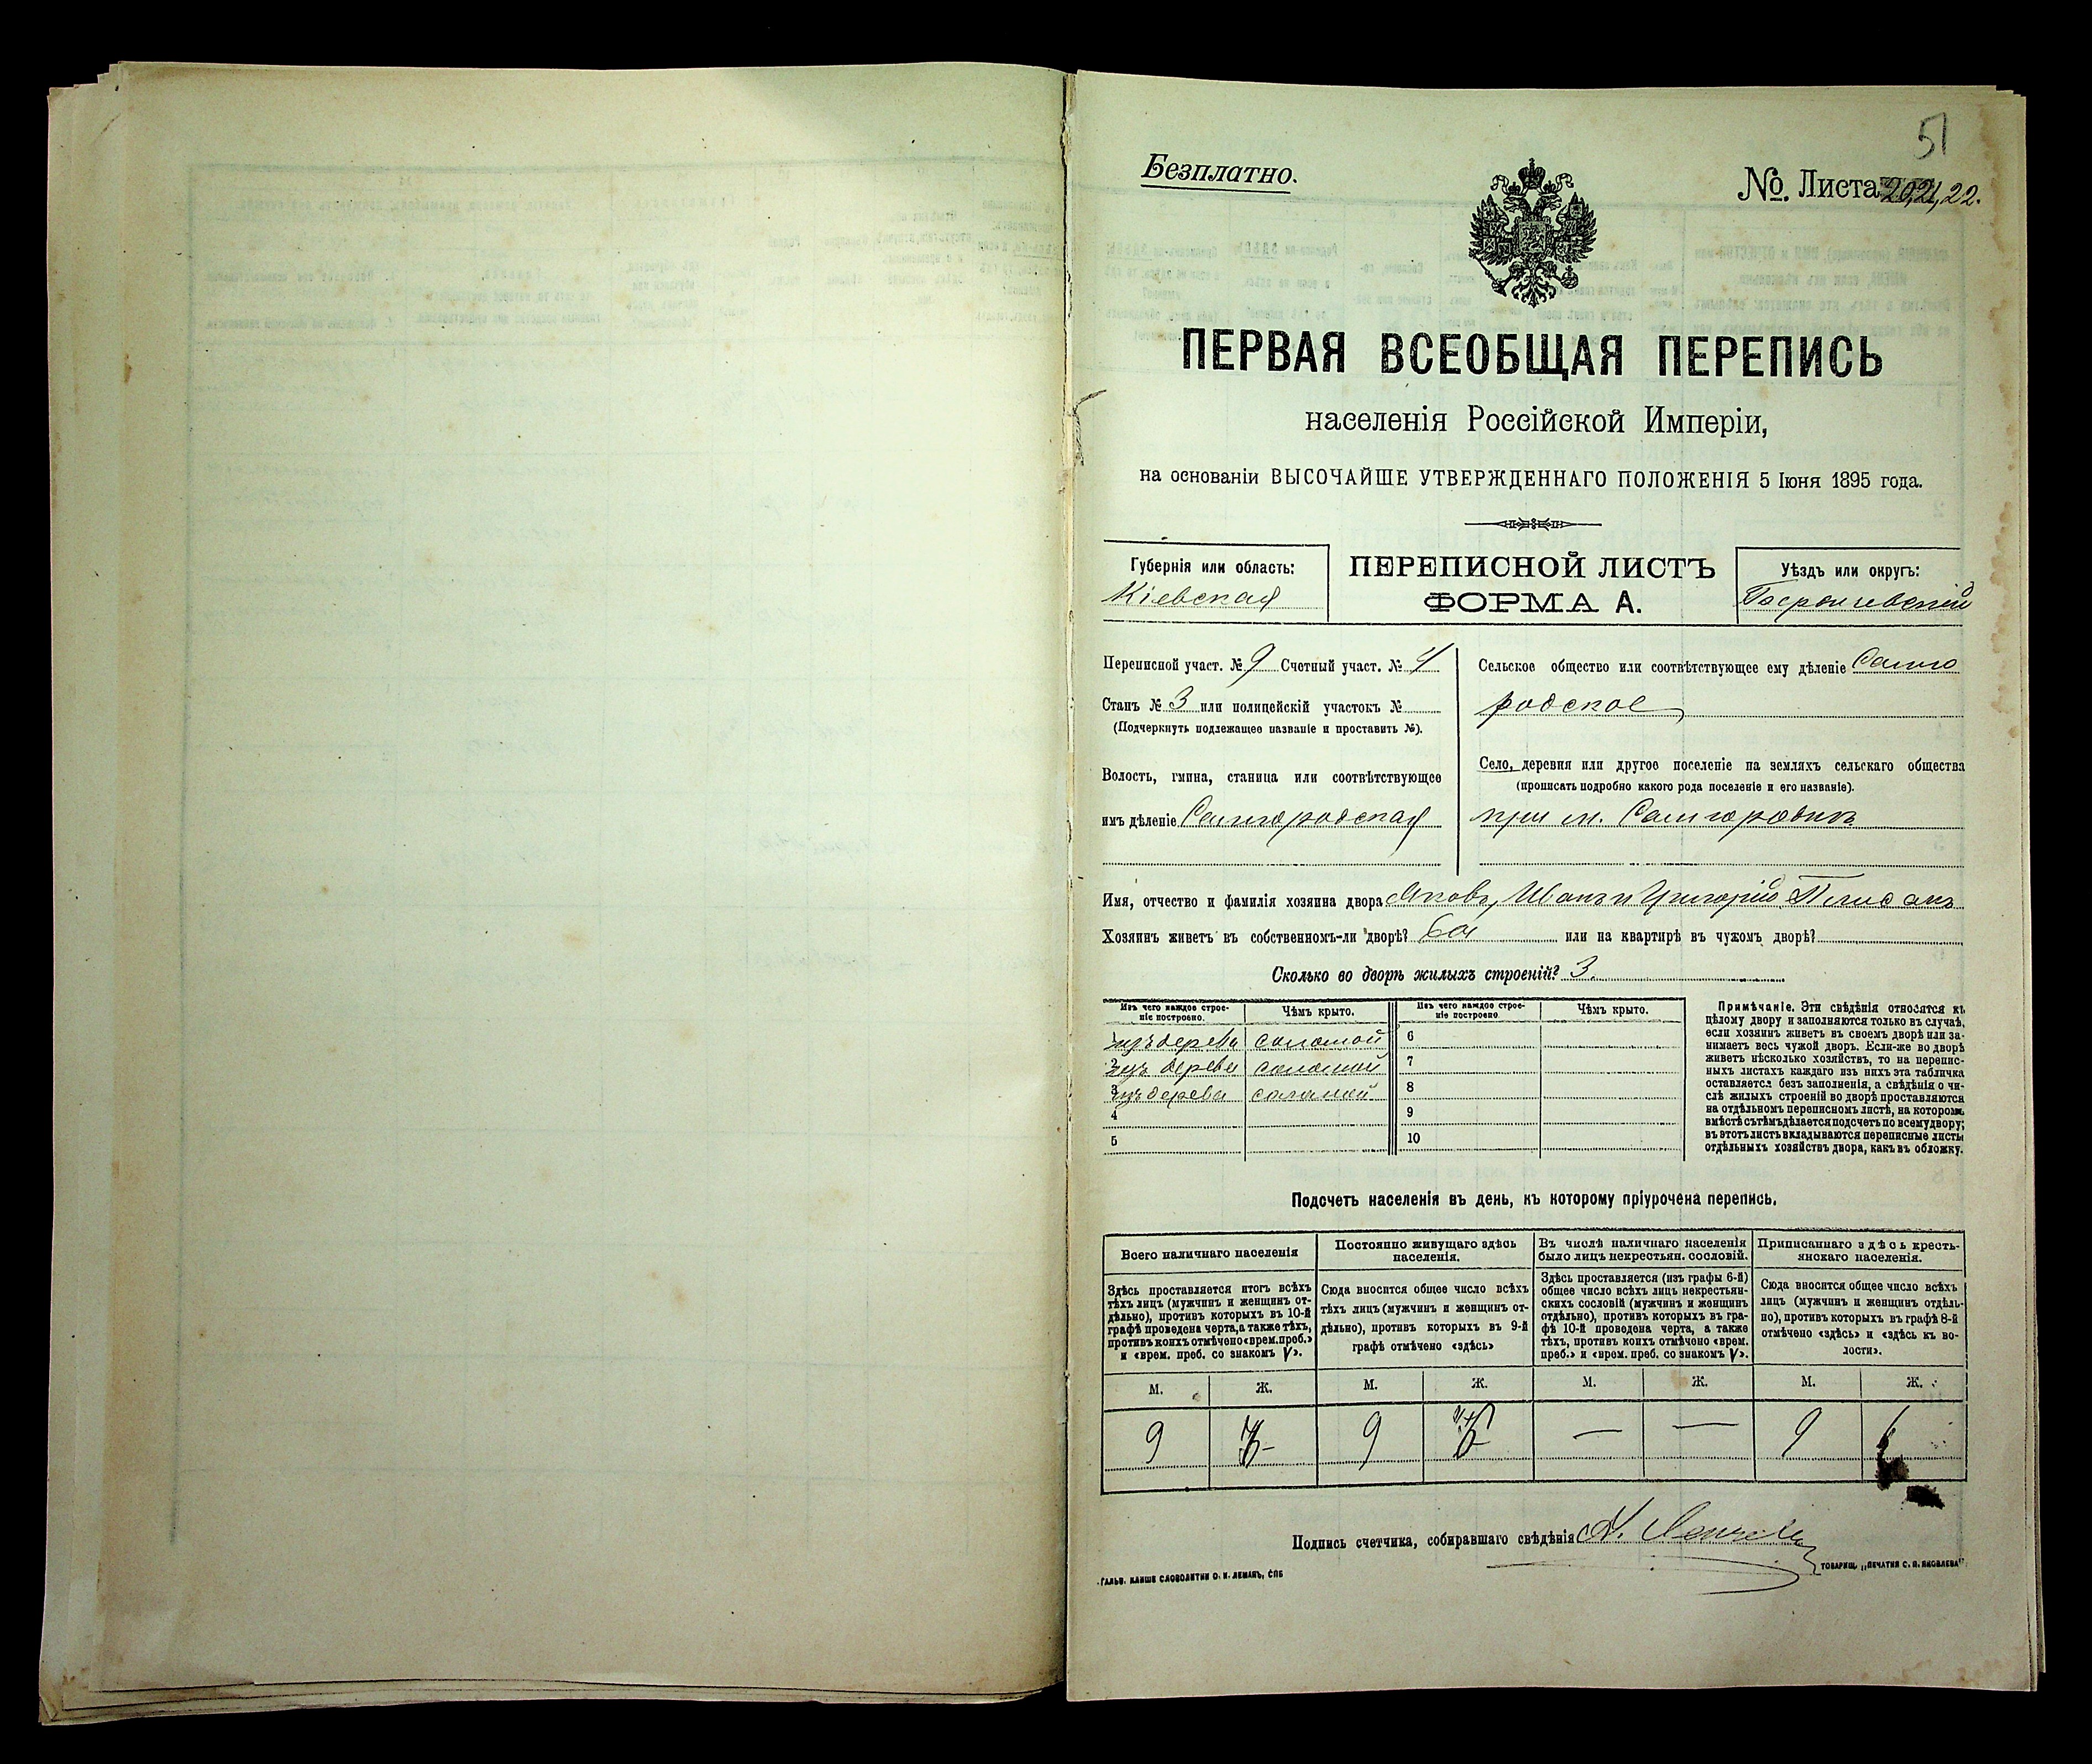 51
Безплатно.
№ Листа 20,21,22.
ПЕРВАЯ ВСЕОБЩАЯ ПЕРЕПИСЬ
населенія Россійской Имперіи,
на основаніи ВЫСОЧАЙШЕ УТВЕРЖДЕННАГО ПОЛОЖЕНІЯ 5 Іюня 1895 года.
Губернія или область:
Кіевская
ПЕРЕПИСНОЙ ЛИСТЪ
ФОРМА А.
Уѣздъ или округъ:
Переписной участ. № 9 Счетный участ. № 4
Станъ № 3 или полицейскій участокъ №
(Подчеркнуть подлежащее названіе и проставить №).
Волость, гмина, станица или соотвѣтствующее
имъ дѣленіе Самгородская
Сельское общество или соотвѣтствующее ему дѣленіе Самго
родское
Село, деревня или другое поселеніе на земляхъ сельскаго общества
(прописать подробно какого рода поселеніе и его названіе).
при м. Самгородкѣ
Имя, отчество и фамилія хозяина двора Яковъ, Иванъ и Григорій
Хозяинъ живетъ въ собственномъ-ли дворѣ? да или на квартирѣ въ чужомъ дворѣ?
Сколько во дворѣ жилыхъ строеній? 3.
Изъ чего каждое строе-
ніе построено.
Чѣмъ крыто.
Изъ чего каждое строе-
ніе построено
Чѣмъ крыто.
изъ дерева соломой 6
2 изъ дерева соломой 7
3 изъ дерева соломой 8
4 9
5 10
Примѣчаніе. Эти свѣдѣнія относятся къ
цѣлому двору и заполняются только въ случаѣ,
если хозяинъ живетъ въ своемъ дворѣ или за-
нимаетъ весь чужой дворъ. Если-же во дворѣ
живетъ нѣсколько хозяйствъ, то на перепис-
ныхъ листахъ каждаго изъ нихъ эта табличка
оставляется безъ заполненія, а свѣдѣнія о чи-
слѣ жилыхъ строеній во дворѣ проставляются
на отдѣльномъ переписномъ листѣ, на которомъ
вмѣстѣ съ тѣмъ дѣлается подсчетъ по всему двору;
въ этотъ листъ вкладываются переписные листы
отдѣльныхъ хозяйствъ двора, какъ въ обложку.
Подсчетъ населенія въ день, къ которому пріурочена перепись.
Всего наличнаго населенія
Здѣсь проставляется итогъ всѣхъ
тѣхъ лицъ (мужчинъ и женщинъ от-
дѣльно), противъ которыхъ въ 10-й
графѣ проведена черта, а также тѣхъ,
противъ коихъ отмѣчено «врем. преб.»
и «врем. преб. со знакомъ V».
Постоянно живущаго здѣсь
населенія.
Сюда вносится общее число всѣхъ
тѣхъ лицъ (мужчинъ и женщинъ от-
дѣльно), противъ которыхъ въ 9-й
графѣ отмѣчено «здѣсь»
Въ числѣ наличнаго населенія
было лицъ некрестьян. сословій.
Здѣсь проставляется (изъ графы 6-й)
общее число всѣхъ лицъ некрестьян-
скихъ сословій (мужчинъ и женщинъ
отдѣльно), противъ которыхъ въ гра-
фѣ 10-й проведена черта, а также
тѣхъ, противъ коихъ отмѣчено «врем.
преб.» и «врем. преб. со знакомъ V».
Приписаннаго здѣсь кресть-
янскаго населенія.
Сюда вносится общее число всѣхъ
лицъ (мужчинъ и женщинъ отдѣль-
но), противъ которыхъ въ графѣ 8-й
отмѣчено «здѣсь» и «здѣсь къ во-
лости».
М. Ж. М. Ж. М. Ж. М. Ж.
9 9 — — 9
Подпись счетчика, собиравшаго свѣдѣнія
ГАЛЬВ. КЛИШЕ СЛОВОЛИТНИ О. И. ЛЕМАНЪ, СПБ
ТОВАРИЩ. „ПЕЧАТНЯ С. П. ЯКОВЛЕВА"